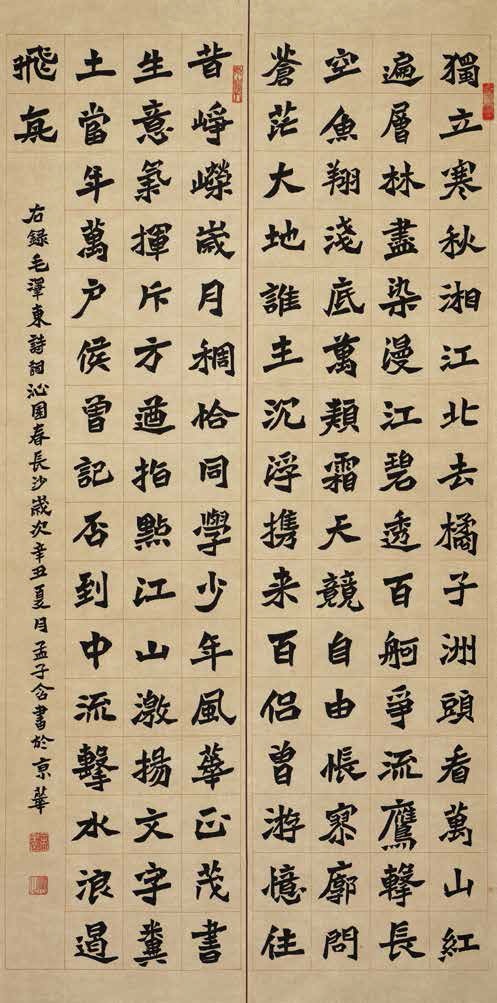 獨立寒秋湘江北去橘子洲頭看萬山紅
遍層林盡染漫江碧透百舸爭流鷹擊長
空魚翔淺底萬類霜天競自由悵寥廓問
蒼茫大地誰主沉浮携来百侣曾游憶往
昔崢嶸歲月稠恰同學少年風華正茂書
生意氣揮斥方遒指點江山激揚文字糞
土當年萬户侯曾記否到中流擊水浪遏
飛
右録毛澤東詩詞沁園春長沙歲次辛丑夏月孟子含書於京華